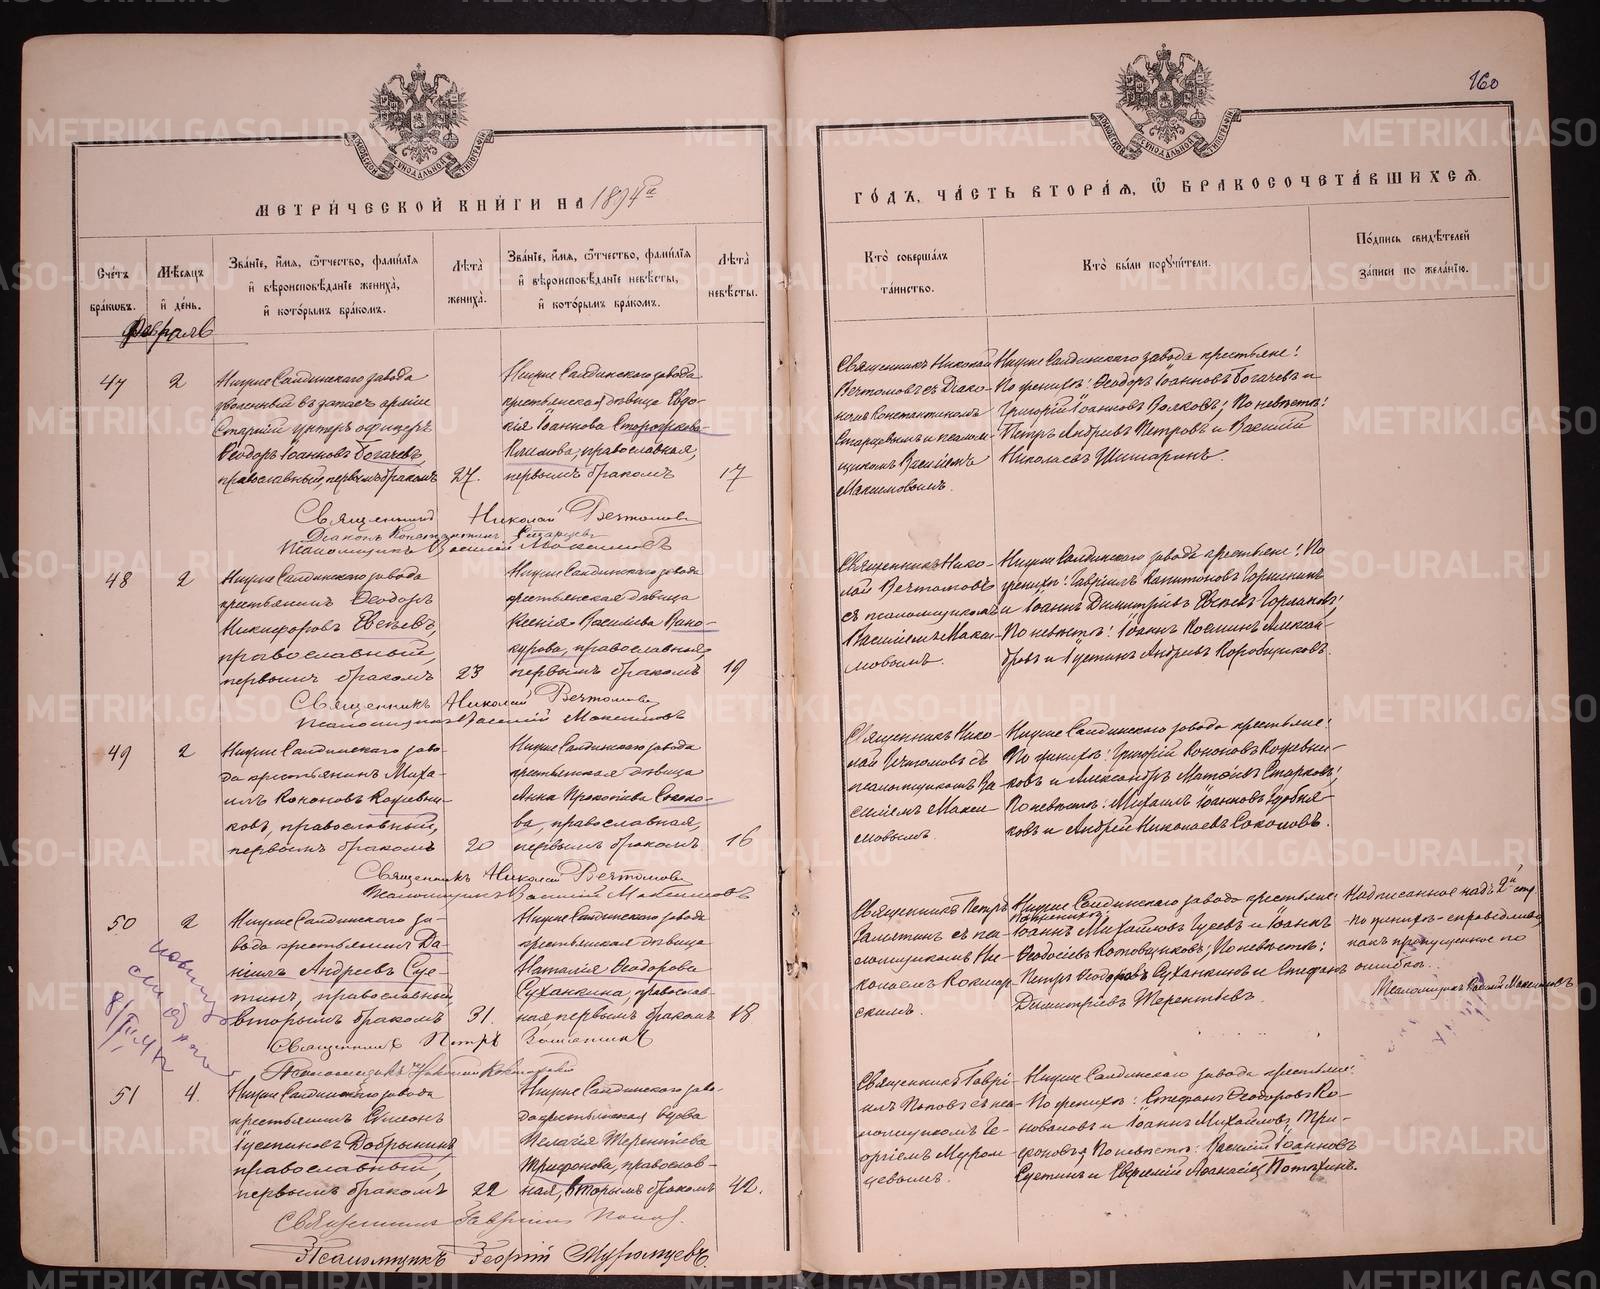 160
МЕТРИ́ЧЕСКОЙ КНИ́ГИ НА 1894 г.
ГО́ДЪ, ЧА́СТЬ ВТОРА́Я, Ѡ БРАКОСОЧЕТА́ВШИХСЯ.
МОСКОВСКОЙ СѴНОДАЛЬНОЙ ТИПОГРАФІИ
МОСКОВСКОЙ СѴНОДАЛЬНОЙ ТИПОГРАФІИ
Сче́тъ бра́кѡвъ.
Мѣ́сяцъ и́ де́нь.
Зва́нїе, и́мя, ѻ҆́тчество, фами́лїя
и́ вѣроисповѣ́данїе жениха̀,
и́ кото́рымъ бра́комъ.
Лѣ́та̀ жениха̀.
Зва́нїе, и́мя, ѻ҆́тчество, фами́лїя
и́ вѣроисповѣ́данїе невѣ́сты,
и́ кото́рымъ бра́комъ.
Лѣ́та̀ невѣ́сты.
Кто̀ соверша́лъ
та́инство.
Кто̀ бы́ли порꙋчи́тели.
По́дпись свидѣ́телей
за́писи по жела́нїю.
Февраль
47
2
Нижне Салдинскаго завода
уволенный въ запасъ арміи
Старшій унтеръ офицеръ
Ѳеодоръ Іоанновъ Богачевъ,
православный, первымъ бракомъ
27.
Нижне Салдинскаго завода
крестьянская дѣвица Евдо-
кія Іоаннова Сторожкова
православная,
первымъ бракомъ
17
Священникъ Николай
Вечтомовъ съ діако-
номъ Константиномъ
Старцевымъ и псалом-
щикомъ Василіемъ
Максимовымъ.
Нижне Салдинскаго завода крестьяне:
По женихѣ: Ѳеодоръ Іоанновъ Богачевъ и
Григорій Іоанновъ Волковъ; По невѣстѣ:
Петръ Андреевъ Петровъ и Василій
Николаевъ Шишаринъ.
Священникъ Николай Вечтомовъ
Діаконъ Константинъ Старцевъ
Псаломщикъ Василій Максимовъ
48
2
Нижне Салдинскаго завода
крестьянинъ Ѳеодоръ
Никифоровъ Евсѣевъ,
православный,
первымъ бракомъ
23
Нижне Салдинскаго завода
крестьянская дѣвица
Ксенія Василіева Вано-
курова, православная,
первымъ бракомъ
19
Священникъ Нико-
лай Вечтомовъ
съ псаломщикомъ
Василіемъ Макси-
мовымъ.
Нижне Салдинскаго завода крестьяне: По
женихѣ: Гавріилъ Капитоновъ Горшенинъ
и Іоаннъ Димитріевъ Евсѣевъ Горлановъ;
По невѣстѣ: Іоаннъ Космин Алексан-
дровъ и Іустинъ Андреевъ Коробщиковъ.
Священникъ Николай Вечтомовъ
Псаломщикъ Василій Максимовъ
49
2
Нижне Салдинскаго заво-
да крестьянинъ Миха-
илъ Кононовъ Кожевни-
ковъ, православный,
первымъ бракомъ
20
Нижне Салдинскаго завода
крестьянская дѣвица
Анна Прокопіева Соколо-
ва, православная,
первымъ бракомъ
16
Священникъ Нико-
лай Вечтомовъ съ
псаломщикомъ Ва-
силіемъ Макси-
мовымъ.
Нижне Салдинскаго завода крестьяне:
По женихѣ: Григорій Кононовъ Кожевни-
ковъ и Александръ Матѳіевъ Старковъ;
По невѣстѣ: Михаилъ Іоанновъ
ковъ и Андрей Николаевъ Соколовъ.
Священникъ Николай Вечтомовъ
Псаломщикъ Василій Максимовъ
50
2
Нижне Салдинскаго за-
вода крестьянинъ Да-
ніилъ Андреевъ Сус-
тинъ, православный
вторымъ бракомъ
31.
Нижне Салдинскаго завода
крестьянская дѣвица
Наталія Ѳеодорова
Суханкина, православ-
ная, первымъ бракомъ
18
Священникъ Петръ
Замятинъ съ пса-
ломщикомъ Ни-
колаемъ
скимъ.
Нижне Салдинскаго завода крестьяне:
По женихѣ
Іоаннъ Михайловъ Гусевъ и Іоаннъ
Ѳеодосіевъ Котовщиковъ; По невѣстѣ:
Петръ Ѳеодоровъ Суханкинъ и Стефанъ
Димитріевъ Терентьевъ.
Надписанное надъ 2й стр.
по женихѣ - справедливо,
какъ пропущенное по
ошибкѣ.
Псаломщикъ Василій Максимовъ
Священникъ Петръ Замятинъ
51
4.
Нижне Салдинскаго завода
крестьянинъ Симеонъ
Іустиновъ Добрынинъ,
православный,
первымъ бракомъ
22
Нижне Салдинскаго заво-
да крестьянская вдова
Пелагія Терентіева
Трифонова, православ-
ная, вторымъ бракомъ
42.
Священникъ Гаврі-
илъ Поповъ съ пса-
ломщикомъ Ге-
оргіемъ Муром-
цевымъ.
Нижне Салдинскаго завода крестьяне:
По женихѣ: Стефанъ Ѳеодоровъ Ко-
новаловъ и Іоаннъ Михайловъ Три-
фоновъ; По невѣстѣ: Василій Іоанновъ
Сустинъ и Евфимій Аѳанасіевъ Потѣхинъ.
Священникъ Гавріилъ Поповъ.
Псаломщикъ Георгій Муромцевъ.
METRIKI.GASO-URAL.RU